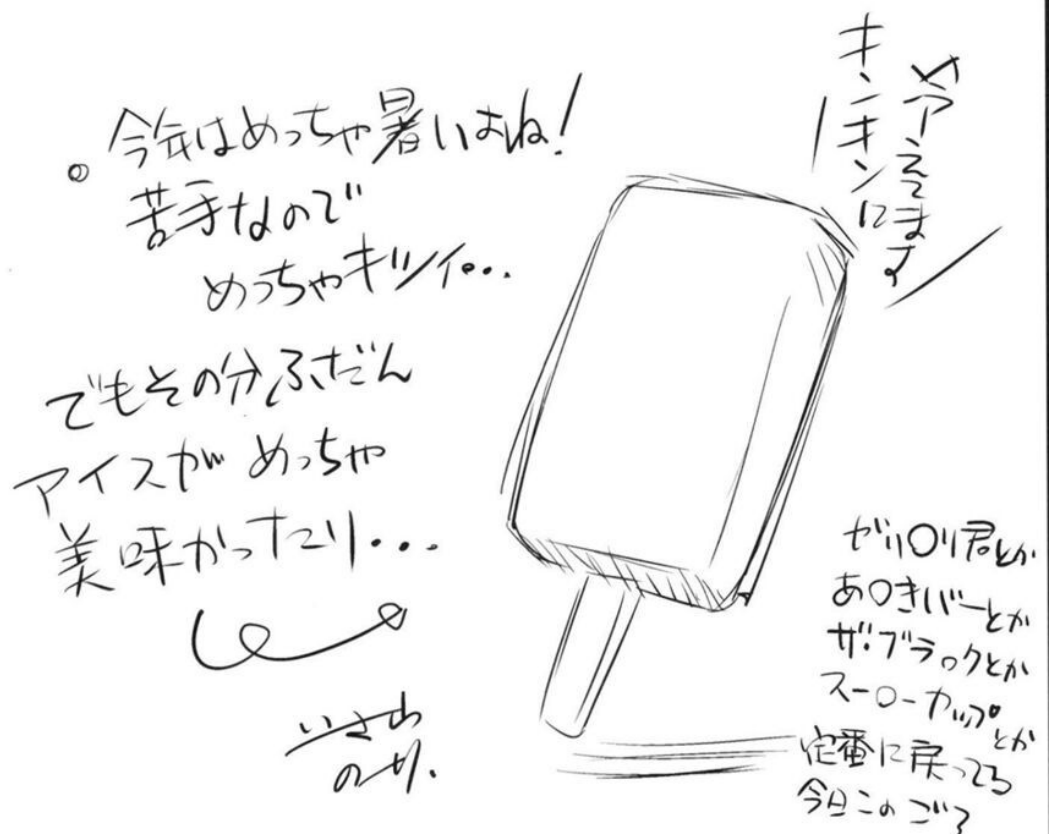 今年はめっちゃ暑いよね!
苦手なので
めっちゃキツイ...
でもその分ふだん
アイスがめっちゃ
美味かったり...
いさわ
のり.
キンキンに
冷えてます
ガリ〇リ君とか
あ〇きバーとか
ザ・ブラックとか
スー〇ーカップとか
定番に戻ってる
今日このごろ